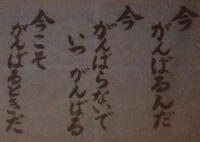 今
がんばるんだ
今
がんばらないで
いつ がんばる
今こそ
がんばるときだ